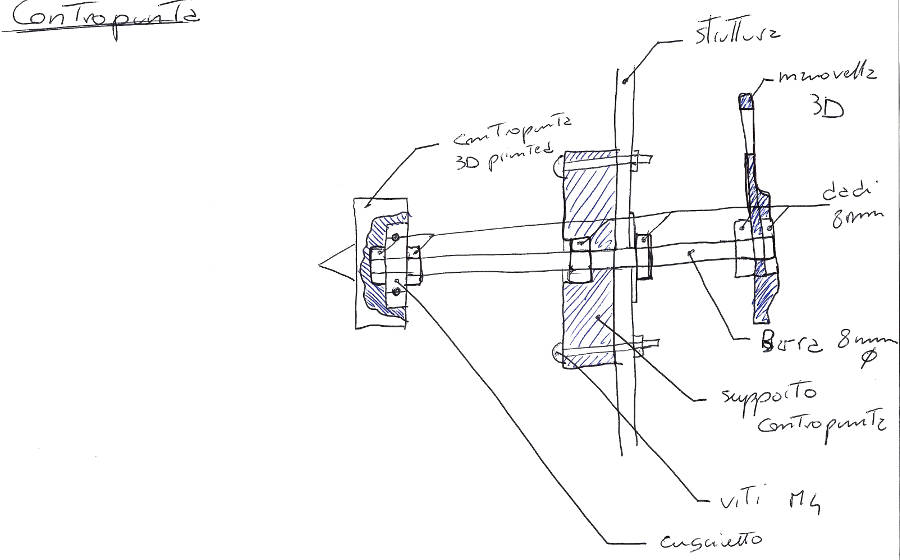 Contropunta
struttura
manovella
3D
contropunta
3D printed
dadi
8mm
Barra 8mm
Ø
supporto
contropunta
viti M4
cuscinetto